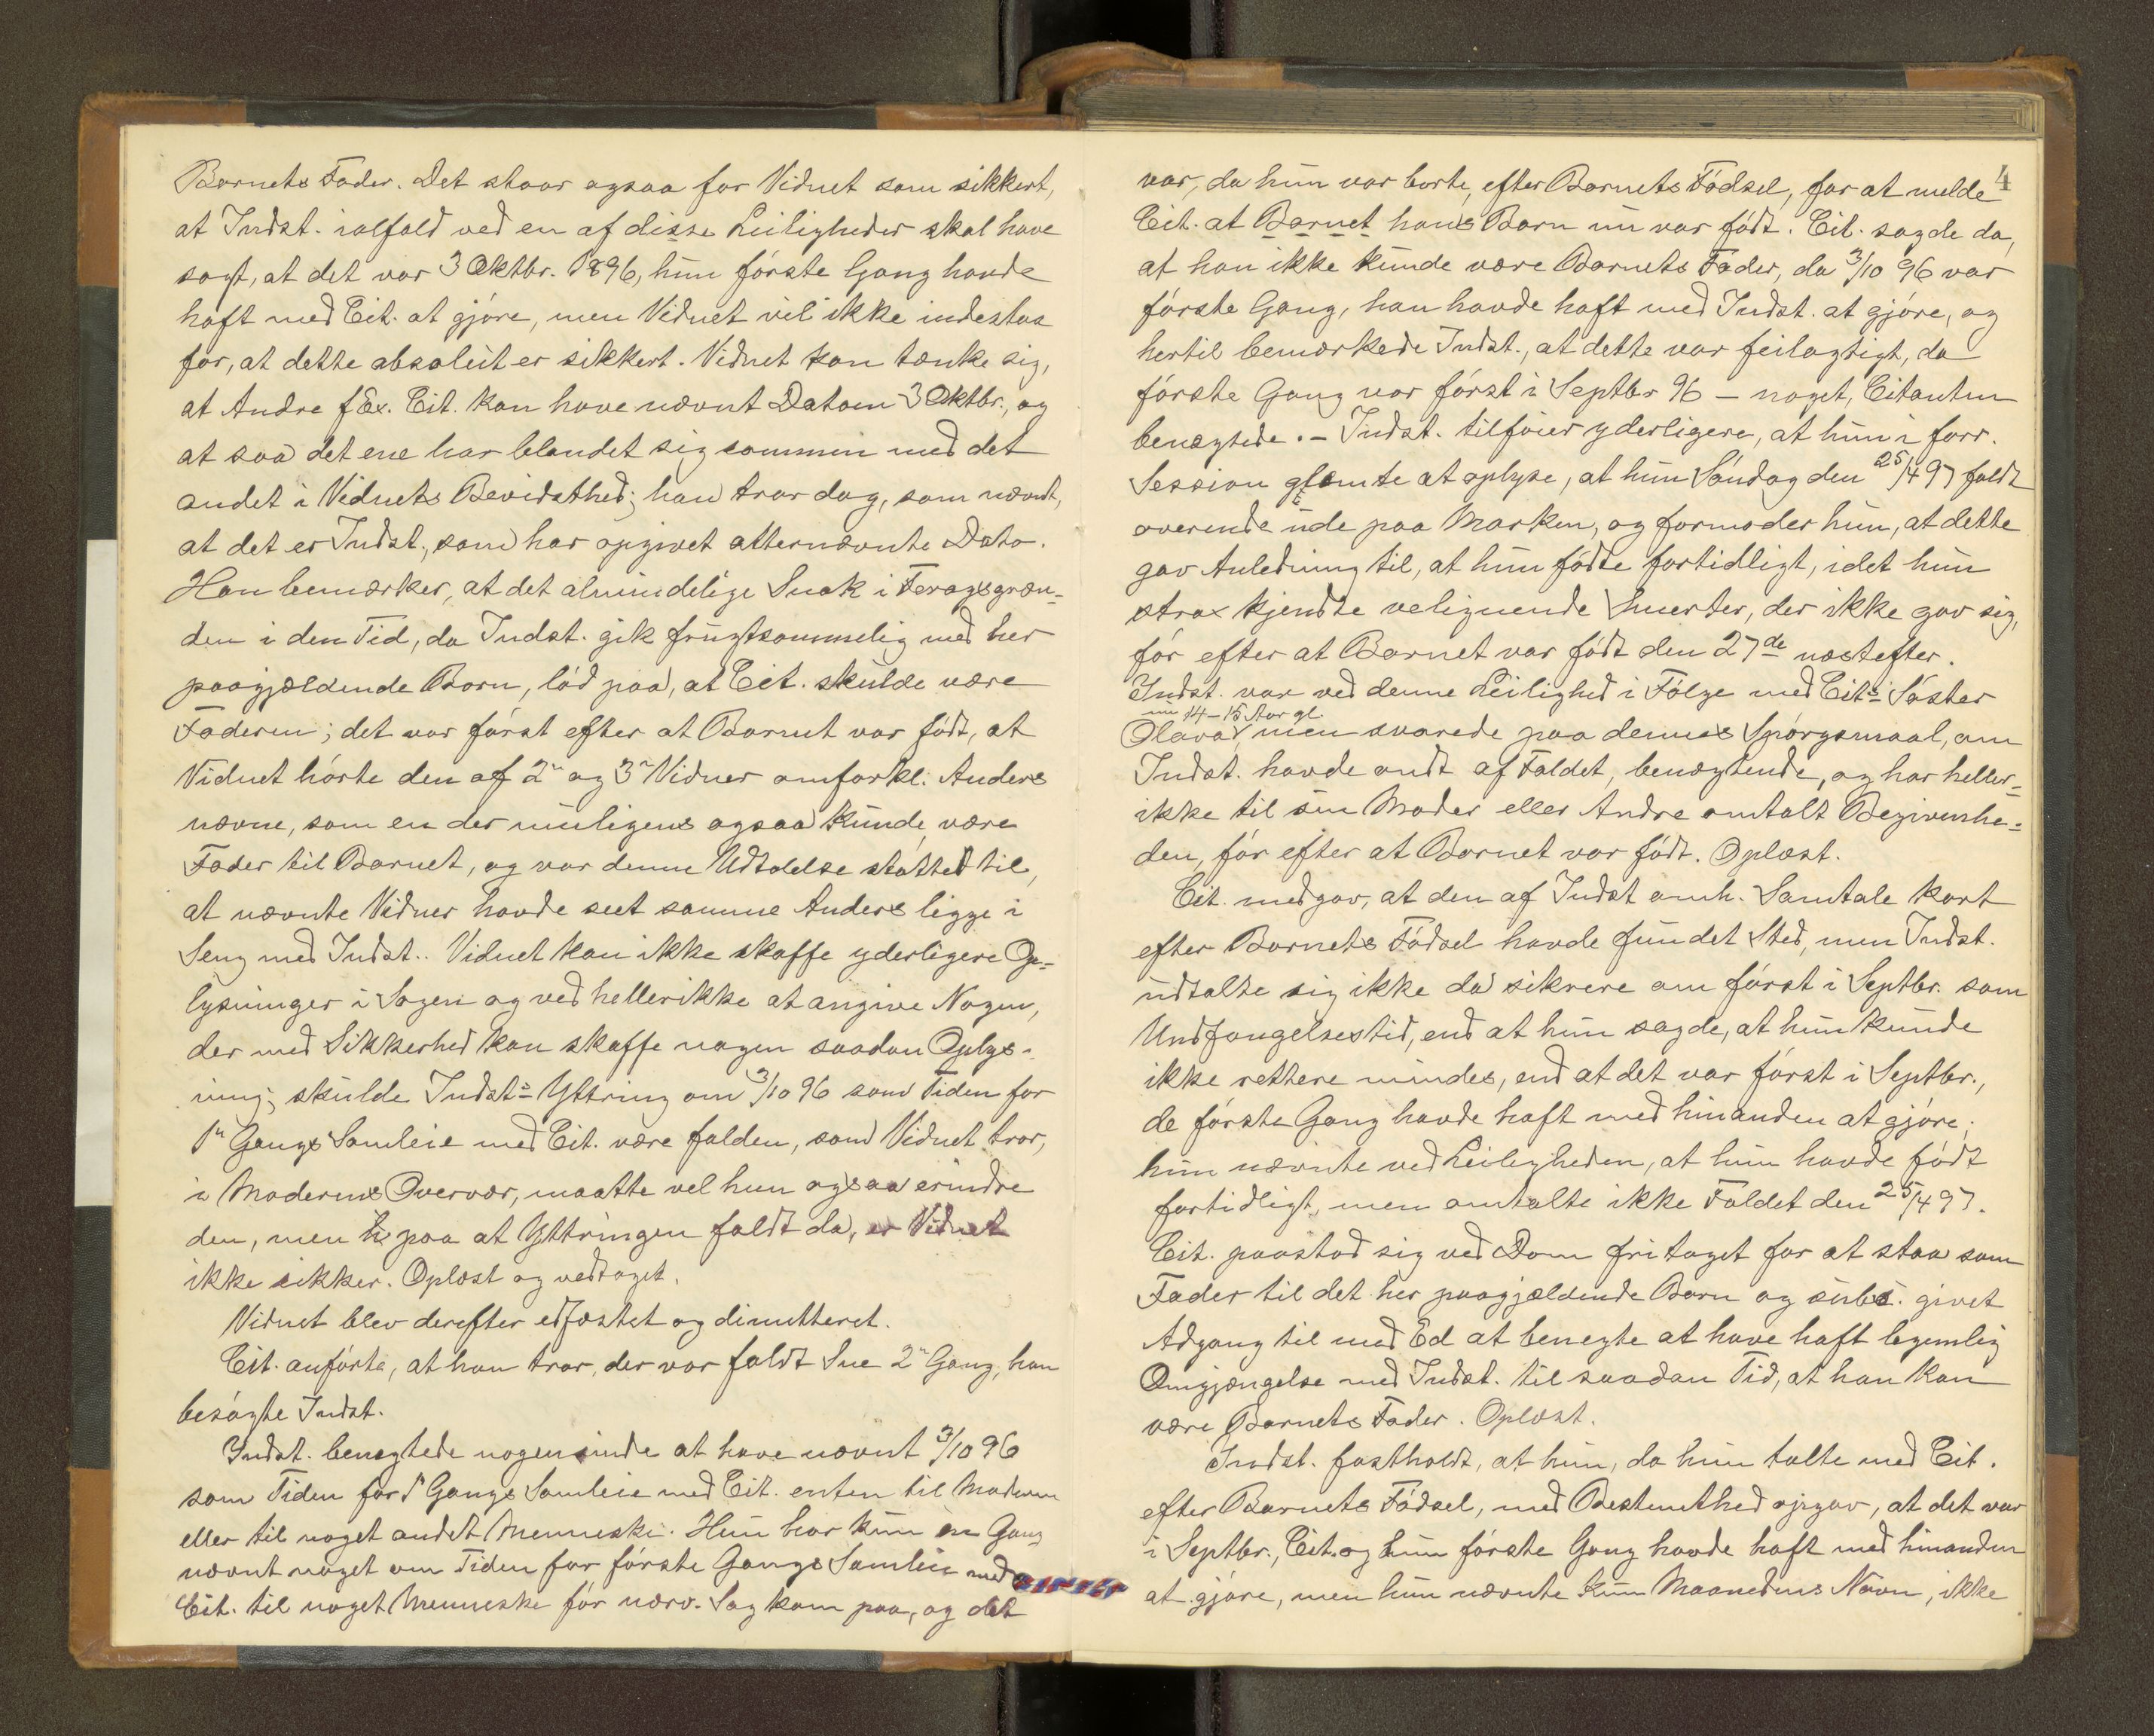 Barnets Fader. Det staar ogsaa for Vidnet som sikkert,
at Indst. ialfald ved en af disse Leiligheder skal have
sagt, at det var 3 Oktbr. 1896, hun første Gang havde
haft med Cit. at gjøre, men Vidnet vil ikke indestaa
for, at dette absolut er sikkert. Vidnet kan tænke sig,
at Andre f Ex. Cit. kan have nævnt Datoen 3 Oktbr., og
at saa det ene har blandet sig sammen med det
andet i Vidnets Bevidsthed; han tror dog, som nævnt,
at det er Indst., som har opgivet alternævnte Dato.
Han bemærker, at det almindelige Snak i Feragsgræn-
den i den Tid, da Indst. gik frugtsommelig med her
paagjældende Barn, lød paa, at Cit. skulde være
Faderen; det var først efter at Barnet var født, at
Vidnet hørte den af 2n og 3n Vidner omforkl. Anders
nævne, som en der muligens ogsaa kunde være
Fader til Barnet, og var denne Udtalelse støttet til,
at nævnte Vidner havde seet samme Anders ligge i
Seng med Indst.. Vidnet kan ikke skaffe yderligere Op-
lysninger i Sagen og ved heller ikke at angive Nogen,
der med Sikkerhed kan skaffe nogen saadan Oplys-
ning; skulde Indsts Yttring om 3/10 96 som Tiden for
1n Gangs Samleie med Cit. være falden, som Vidnet tror,
i Moderens Overvær, maatte vel hun ogsaa erindre
den, men paa at Yttringen faldt da, er Vidnet
ikke sikker. Oplæst og vedtaget.
Vidnet blev derefter edfæstet og dimitteret.
Cit. anførte, at han tror, der var faldt Sne 2n Gang, han
besøgte Indst.
Indst. benegtede nogensinde at have nævnt 3/10 96
som Tiden for 1n Gangs Samleie med Cit. enten til Moderen
eller til noget andet Menneske. Hun har kun en Gang
nævnt noget om Tiden for første Gangs Samleie med
Cit. til noget Menneske før nærv. Sag kom paa, og det
4
var, da hun var borte, efter Barnets Fødsel, for at melde
Cit. at Barnet hans Barn nu var født. Cit. sagde da,
at han ikke kunde være Barnets Fader, da 3/10 96 var
første Gang, han havde haft med Indst. at gjøre, og
hertil bemærkede Indst., at dette var feilagtigt, da
første Gang var først i Septbr 96 – noget, Citanten
benægtede. – Indst. tilføier yderligere, at hun i forr.
Session glemte at oplyse, at hun Søndag den 25/4 97 faldt
overende ude paa Marken, og formoder hun, at dette
gav Anledning til, at hun fødte fortidligt, idet hun
strax kjendte velignende Smerter, der ikke gav sig,
før efter at Barnet var født den 27de næstefter.
Indst. var ved denne Leilighed i Følge med Cits Søster
nu 14-15 Aar gl.
Olava, men svarede paa dennes Spørgsmaal, om
Indst. havde ondt af Faldet, benægtende, og har heller-
ikke til sin Moder eller Andre omtalt Begivenhe-
den, før efter at Barnet var født. Oplæst.
Cit. medgav, at den af Indst omh. Samtale kort
efter Barnets Fødsel havde fundet Sted, men Indst.
udtalte sig ikke da sikrere om først i Septbr. som
Undfangelsestid, end at hun sagde, at hun kunde
ikke rettere mindes, end at det var først i Septbr.,
de første Gang havde haft med hinanden at gjøre;
hun nævnte ved Leiligheden, at hun havde født
fortidligt, men omtalte ikke Faldet den 25/4 97.
Cit. paastod sig ved Dom fritaget for at staa som
Fader til det her paagjældende Barn og subs. givet
Adgang til med Ed at benegte at have haft legemlig
Omgjængelse med Indst. til saadan Tid, at han kan
være Barnets Fader. Oplæst.
Indst. fastholdt, at hun, da hun talte med Cit.
efter Barnets Fødsel, med Bestemthed opgav, at det var
i Septbr., Cit. og hun første Gang havde haft med hinanden
at gjøre, men hun nævnte kun Maanedens Navn, ikke